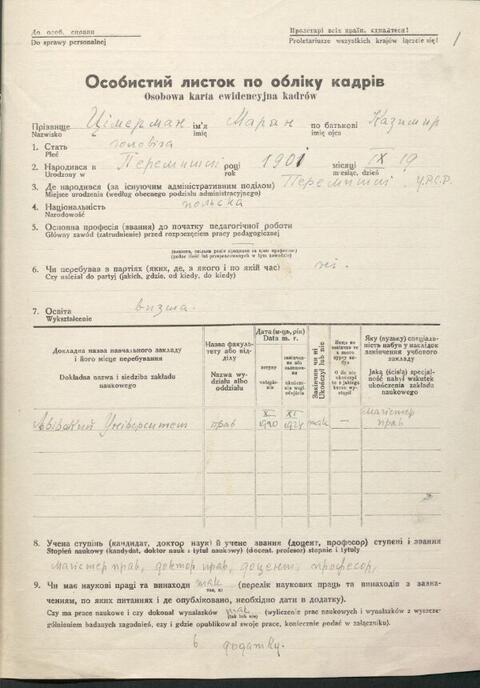 До особ. справи
Do sprawy personalnej
Пролетарі всіх країн, єднайтеся!
Proletariusze wszystkich krajów łączcie się!
1
Особистий листок по обліку кадрів
Osobowa karta ewidencyjna kadrów
Прізвище Цімерман ім'я Марян по батькові Казимир
Nazwisko imię imię ojca
1. Стать чоловіча
Płeć
2. Народився в Перемишлі році 1901 місяці IX 19
Urodzony w rok miesiąc, dzień
3. Де народився (за існуючим адміністративним поділом) Перемишлі. У.Р.С.Р.
Miejsce urodzenia (według obecnego podziału administracyjnego)
4. Національність польська
Narodowość
5. Основна професія (звання) до початку педагогічної роботи
Główny zawód (zatrudnienie) przed rozpoczęciem pracy pedagogicznej
6. Чи перебував в партіях (яких, де, з якого і по якій час) ні.
Czy należał do partyj (jakich, gdzie, od kiedy, do kiedy)
7. Освіта визша.
Wykształcenie
Докладна назва навчального закладу і його місце перебування
Dokładna nazwa i siedziba zakładu naukowego
Назва факультету або відділу
Nazwa wydziału albo oddziału
Дата (м-ць, рік)
Data m. r.
вступу
Закінчив чи ні
Ukończył lub nie
Яку (вузьку) спеціальність набув у наслідок закінчення учбового закладу
Jaką (ścisłą) specjalność nabył wskutek ukończenia zakładu naukowego
Львівский Університет прав X 1920 XI 1924 так — Магістер прав
8. Учена ступінь (кандидат, доктор наук) й учене звання (доцент, професор) ступені і звання
Stopień naukowy (kandydat, doktor nauk i tytuł naukowy) (docent, profesor) stopnie i tytuły
Магістер прав, доктор прав, доцент, професор.
9. Чи має наукові праці та винаходи так (перелік наукових праць та винаходів з зазначенням, по яких питаннях і де опубліковано, необхідно дати в додатку).
Czy ma prace naukowe i czy dokonał wynalazków так (wyliczenie prac naukowych i wynalazków z wyszczególnieniem badanych zagadnień, czy i gdzie opublikował swoje prace, koniecznie podać w załączniku).
в додатку.